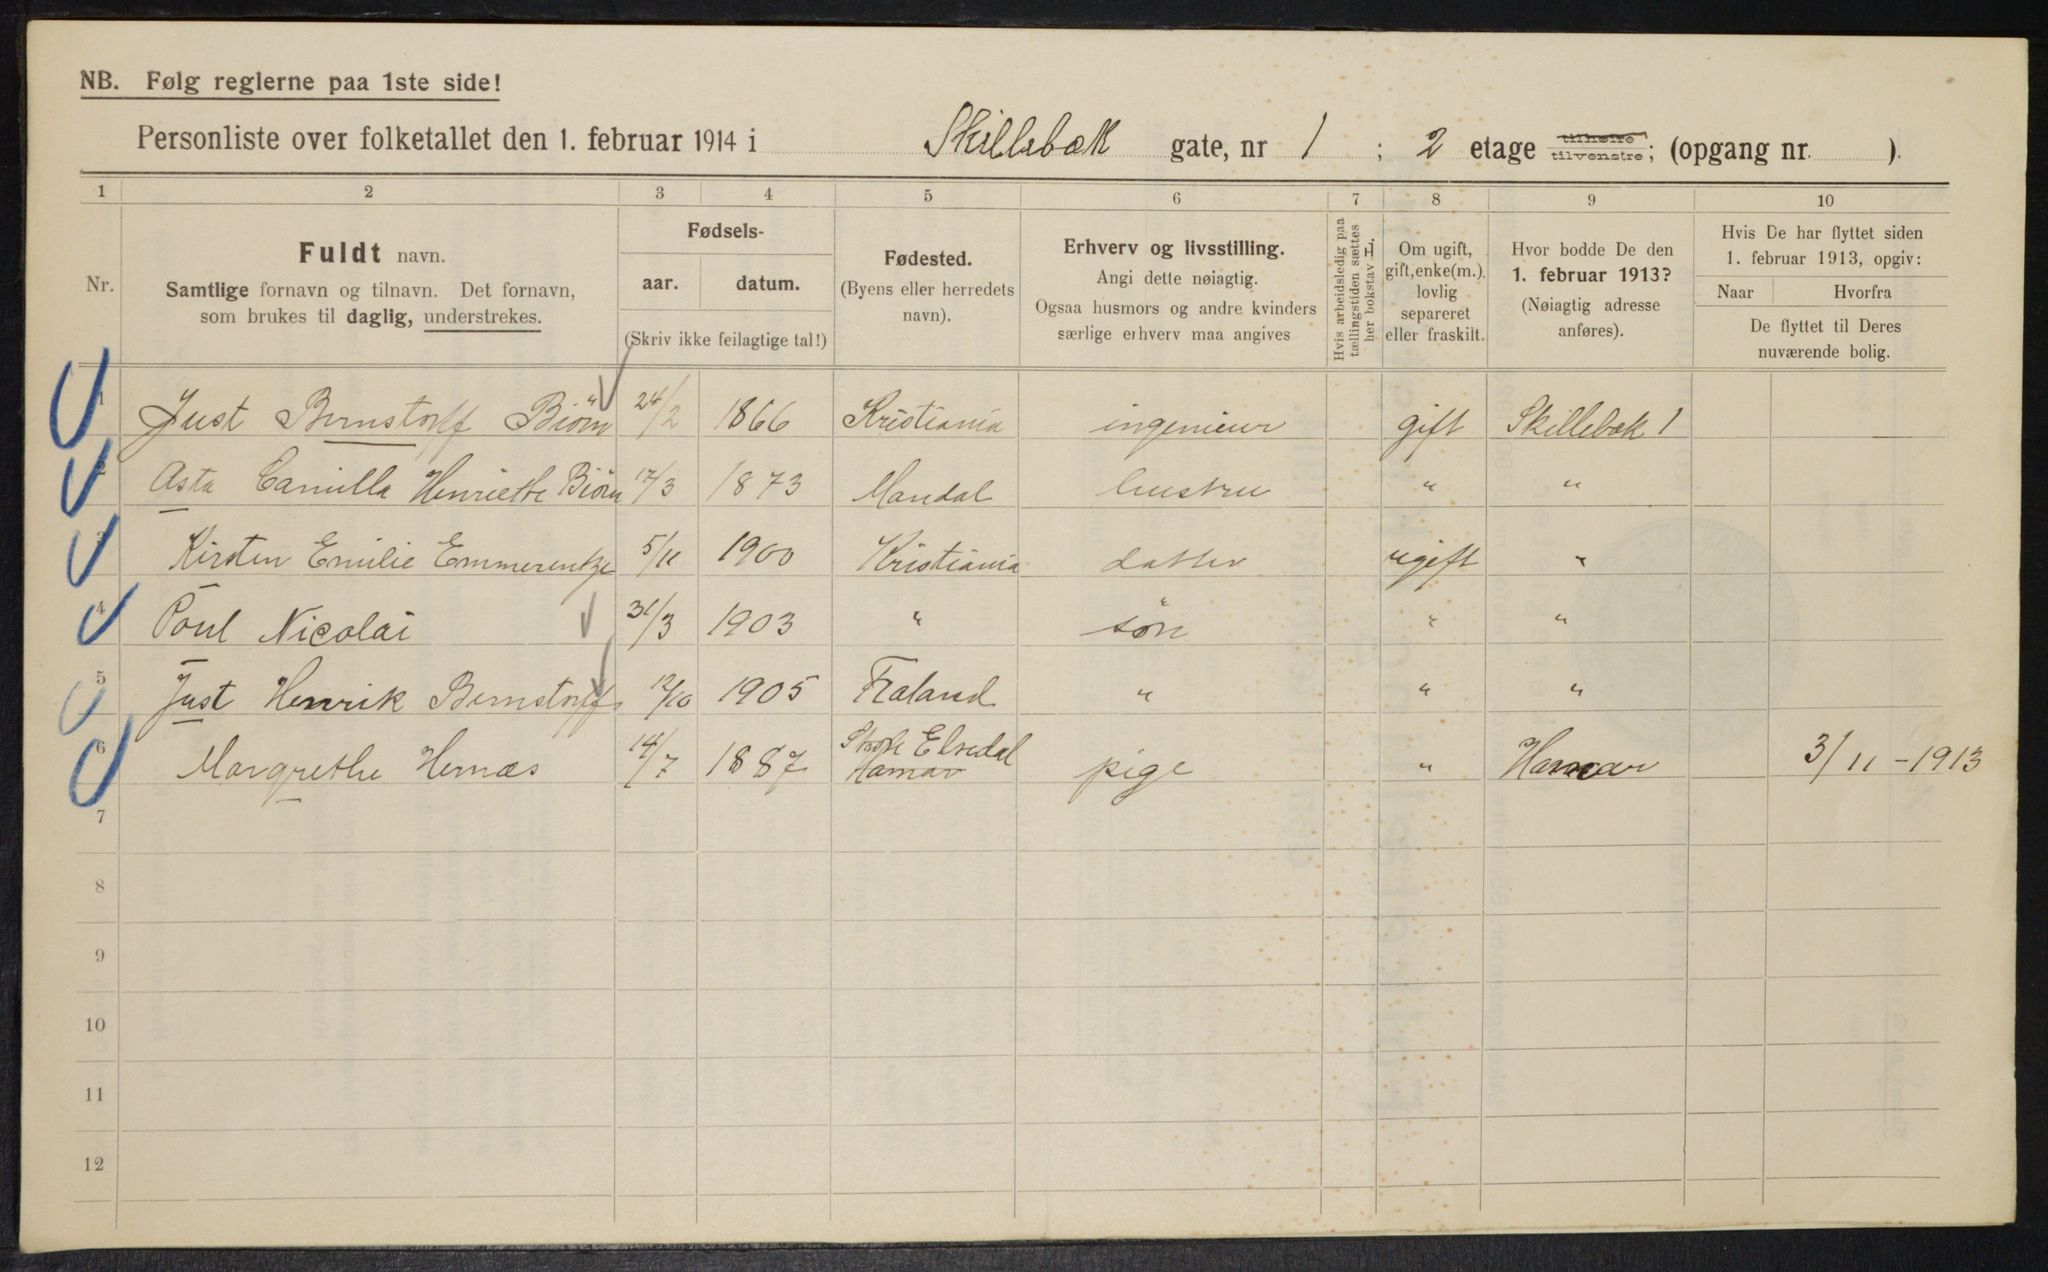 NB. Følg reglerne paa 1ste side!
Personliste over folketallet den 1. februar 1914 i Skillebæk gate, nr 1 ; 2 etage tilhøire tilvenstre; (opgang nr. ).
1 2 3 4 5 6 7 8 9 10
Nr.
Fuldt navn.
Samtlige fornavn og tilnavn. Det fornavn,
som brukes til daglig, understrekes.
Fødsels-
aar. datum.
(Skriv ikke feilagtige tal!)
Fødested.
(Byens eller herredets
navn).
Erhverv og livsstilling.
Angi dette nøiagtig.
Ogsaa husmors og andre kvinders
særlige erhverv maa angives
Hvis arbeidsledig paa
tællingstiden sættes
her bokstav L.
Om ugift,
gift, enke(m.),
lovlig
separeret
eller fraskilt.
Hvor bodde De den
1. februar 1913?
(Nøiagtig adresse
anføres).
Hvis De har flyttet siden
1. februar 1913, opgiv:
Naar Hvorfra
De flyttet til Deres
nuværende bolig.
1 Just Bernstorff Biørn 24/2 1866 Kristiania ingeniør gift Skillebæk 1
2 Asta Camilla Henriette Biørn 17/3 1873 Mandal hustru " "
3 Kirsten Emilie Emmerentze 5/11 1900 Kristiania datter ugift "
4 Poul Nicolai 31/3 1903 " søn " "
5 Just Henrik Bernstorff 12/10 1905 Froland " " "
6 Margrethe Hernæs 14/7 1887 Elvedal Hamar pige " Hamar 3/11-1913
7
8
9
10
11
12